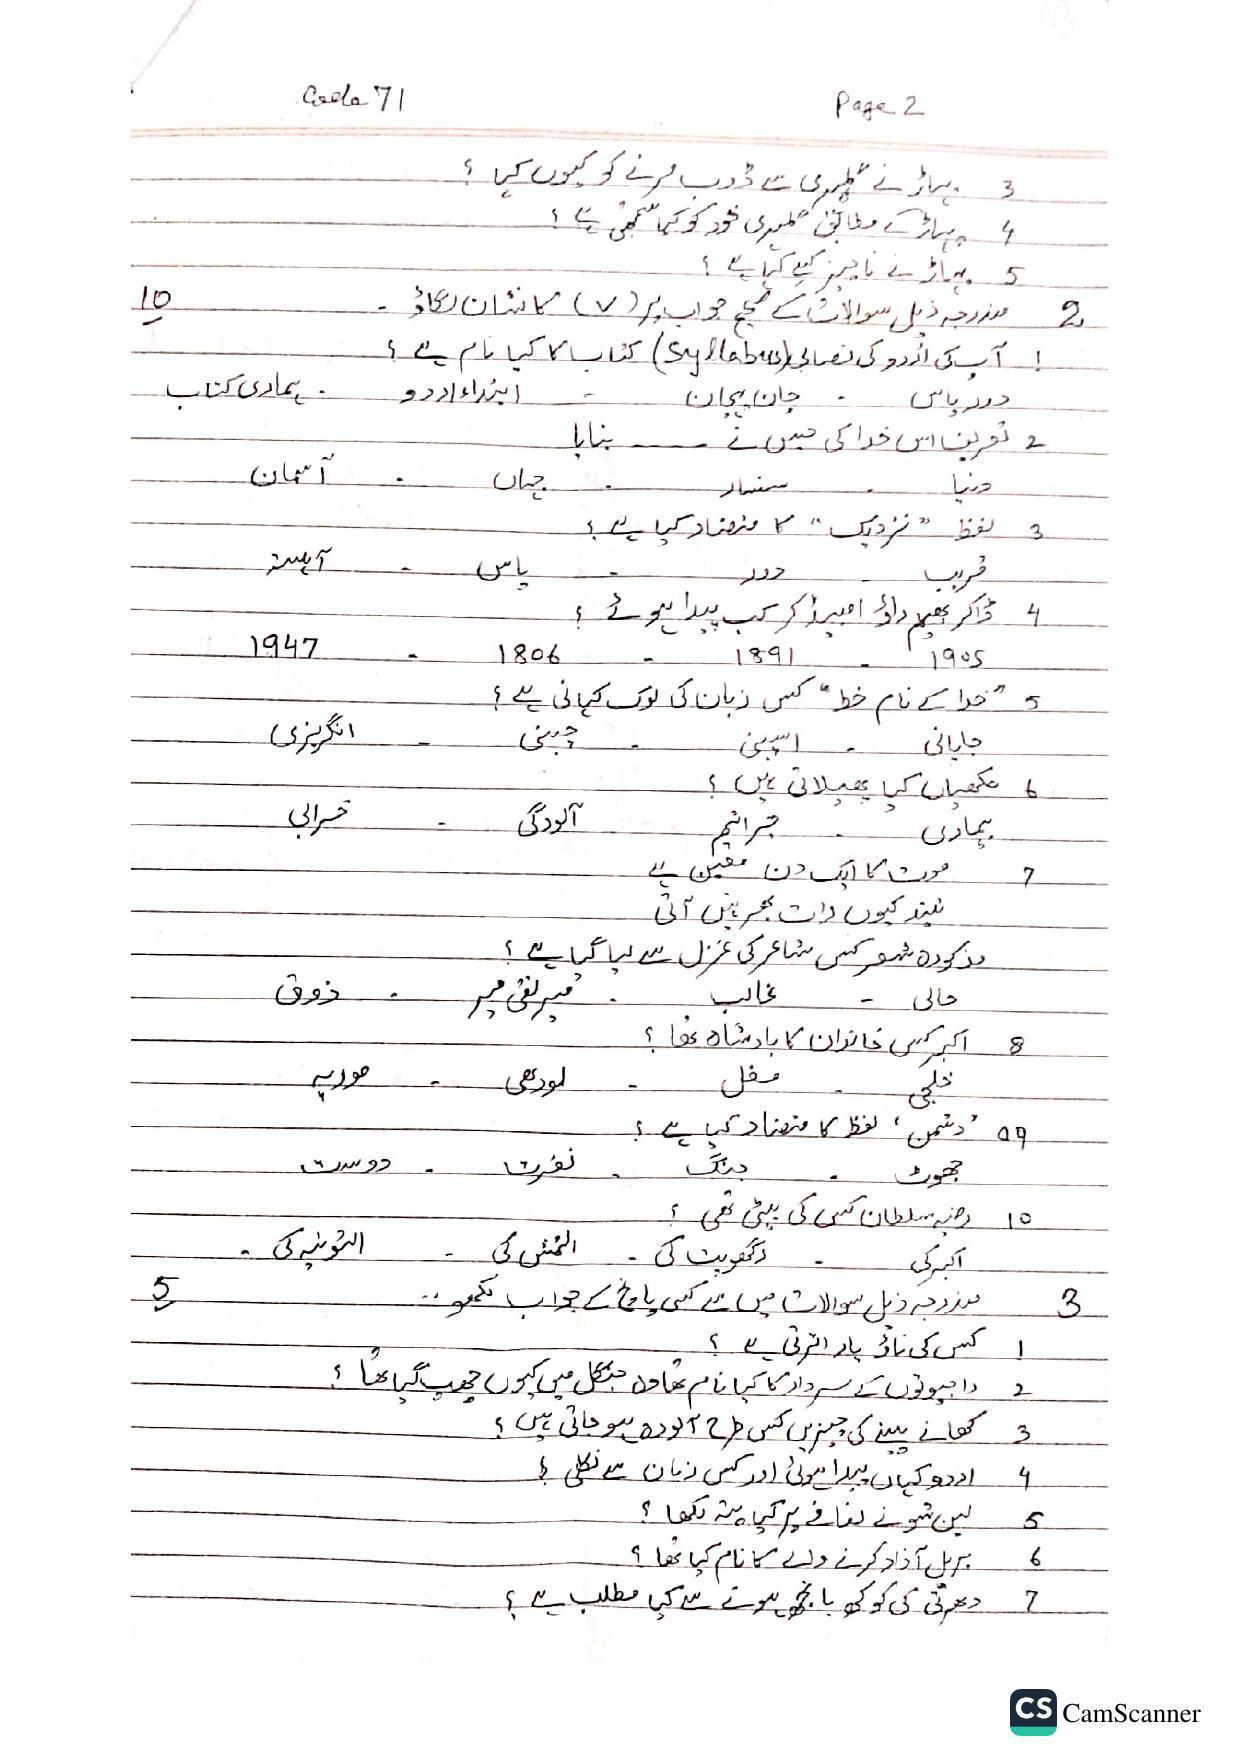 Code 71 Page 2
3 پہاڑ نے گلہری سے ڈوب مرنے کو کیوں کہا ؟
4 پہاڑ کے مطابق گلہری خود کو کیا سمجھتی ہے ؟
5 پہاڑ نے ناچیز کسے کہا ہے ؟
2 مندرجہ ذیل سوالات کے صحیح جواب پر (✓) کا نشان لگاؤ ۔ 10
1 آپ کی اُردو کی نصابی (Syllabus) کتاب کا کیا نام ہے ؟
دور پاس - جان پہچان - ابتداء اردو - ہماری کتاب
2 تعریف اس خدا کی جس نے ------ بنایا
دنیا - سنسار - جہاں - آسمان
3 لفظ "نزدیک" کا متضاد کیا ہے ؟
قریب - دور - پاس - آہستہ
4 ڈاکٹر بھیم راؤ امبیڈکر کب پیدا ہوئے ؟
1905 - 1891 - 1806 - 1947
5 "خدا کے نام خط" کس زبان کی لوک کہانی ہے ؟
جاپانی - اسپینی - چینی - انگریزی
6 مکھیاں کیا پھیلاتی ہیں ؟
بیماری - جراثیم - آلودگی - خرابی
7 موت کا ایک دن معین ہے
نیند کیوں رات بھر نہیں آتی
مذکورہ شعر کس شاعر کی غزل سے لیا گیا ہے ؟
حالی - غالب - میر تقی میر - ذوق
8 اکبر کس خاندان کا بادشاہ تھا ؟
خلجی - مغل - لودھی - موریہ
09 'دشمن' لفظ کا متضاد کیا ہے ؟
جھوٹ - جنگ - نفرت - دوست
10 رضیہ سلطان کس کی بیٹی تھی ؟
اکبر کی - رگھوپت کی - التمش کی - التونیہ کی -
3 مندرجہ ذیل سوالات میں سے کسی پانچ کے جواب لکھو ۔۔ 5
1 کس کی ناؤ پار اترتی ہے ؟
2 راجپوتوں کے سردار کا کیا نام تھا وہ جنگل میں کیوں چھپ گیا تھا ؟
3 کھانے پینے کی چیزیں کس طرح آلودہ ہو جاتی ہیں ؟
4 اردو کہاں پیدا ہوئی اور کس زبان سے نکلی ؟
5 لین شو نے لفافے پر کیا پتہ لکھا ؟
6 ہریل آزاد کرنے والے کا نام کیا تھا ؟
7 دھرتی کی کوکھ بانجھ ہونے سے کیا مطلب ہے ؟
CS CamScanner